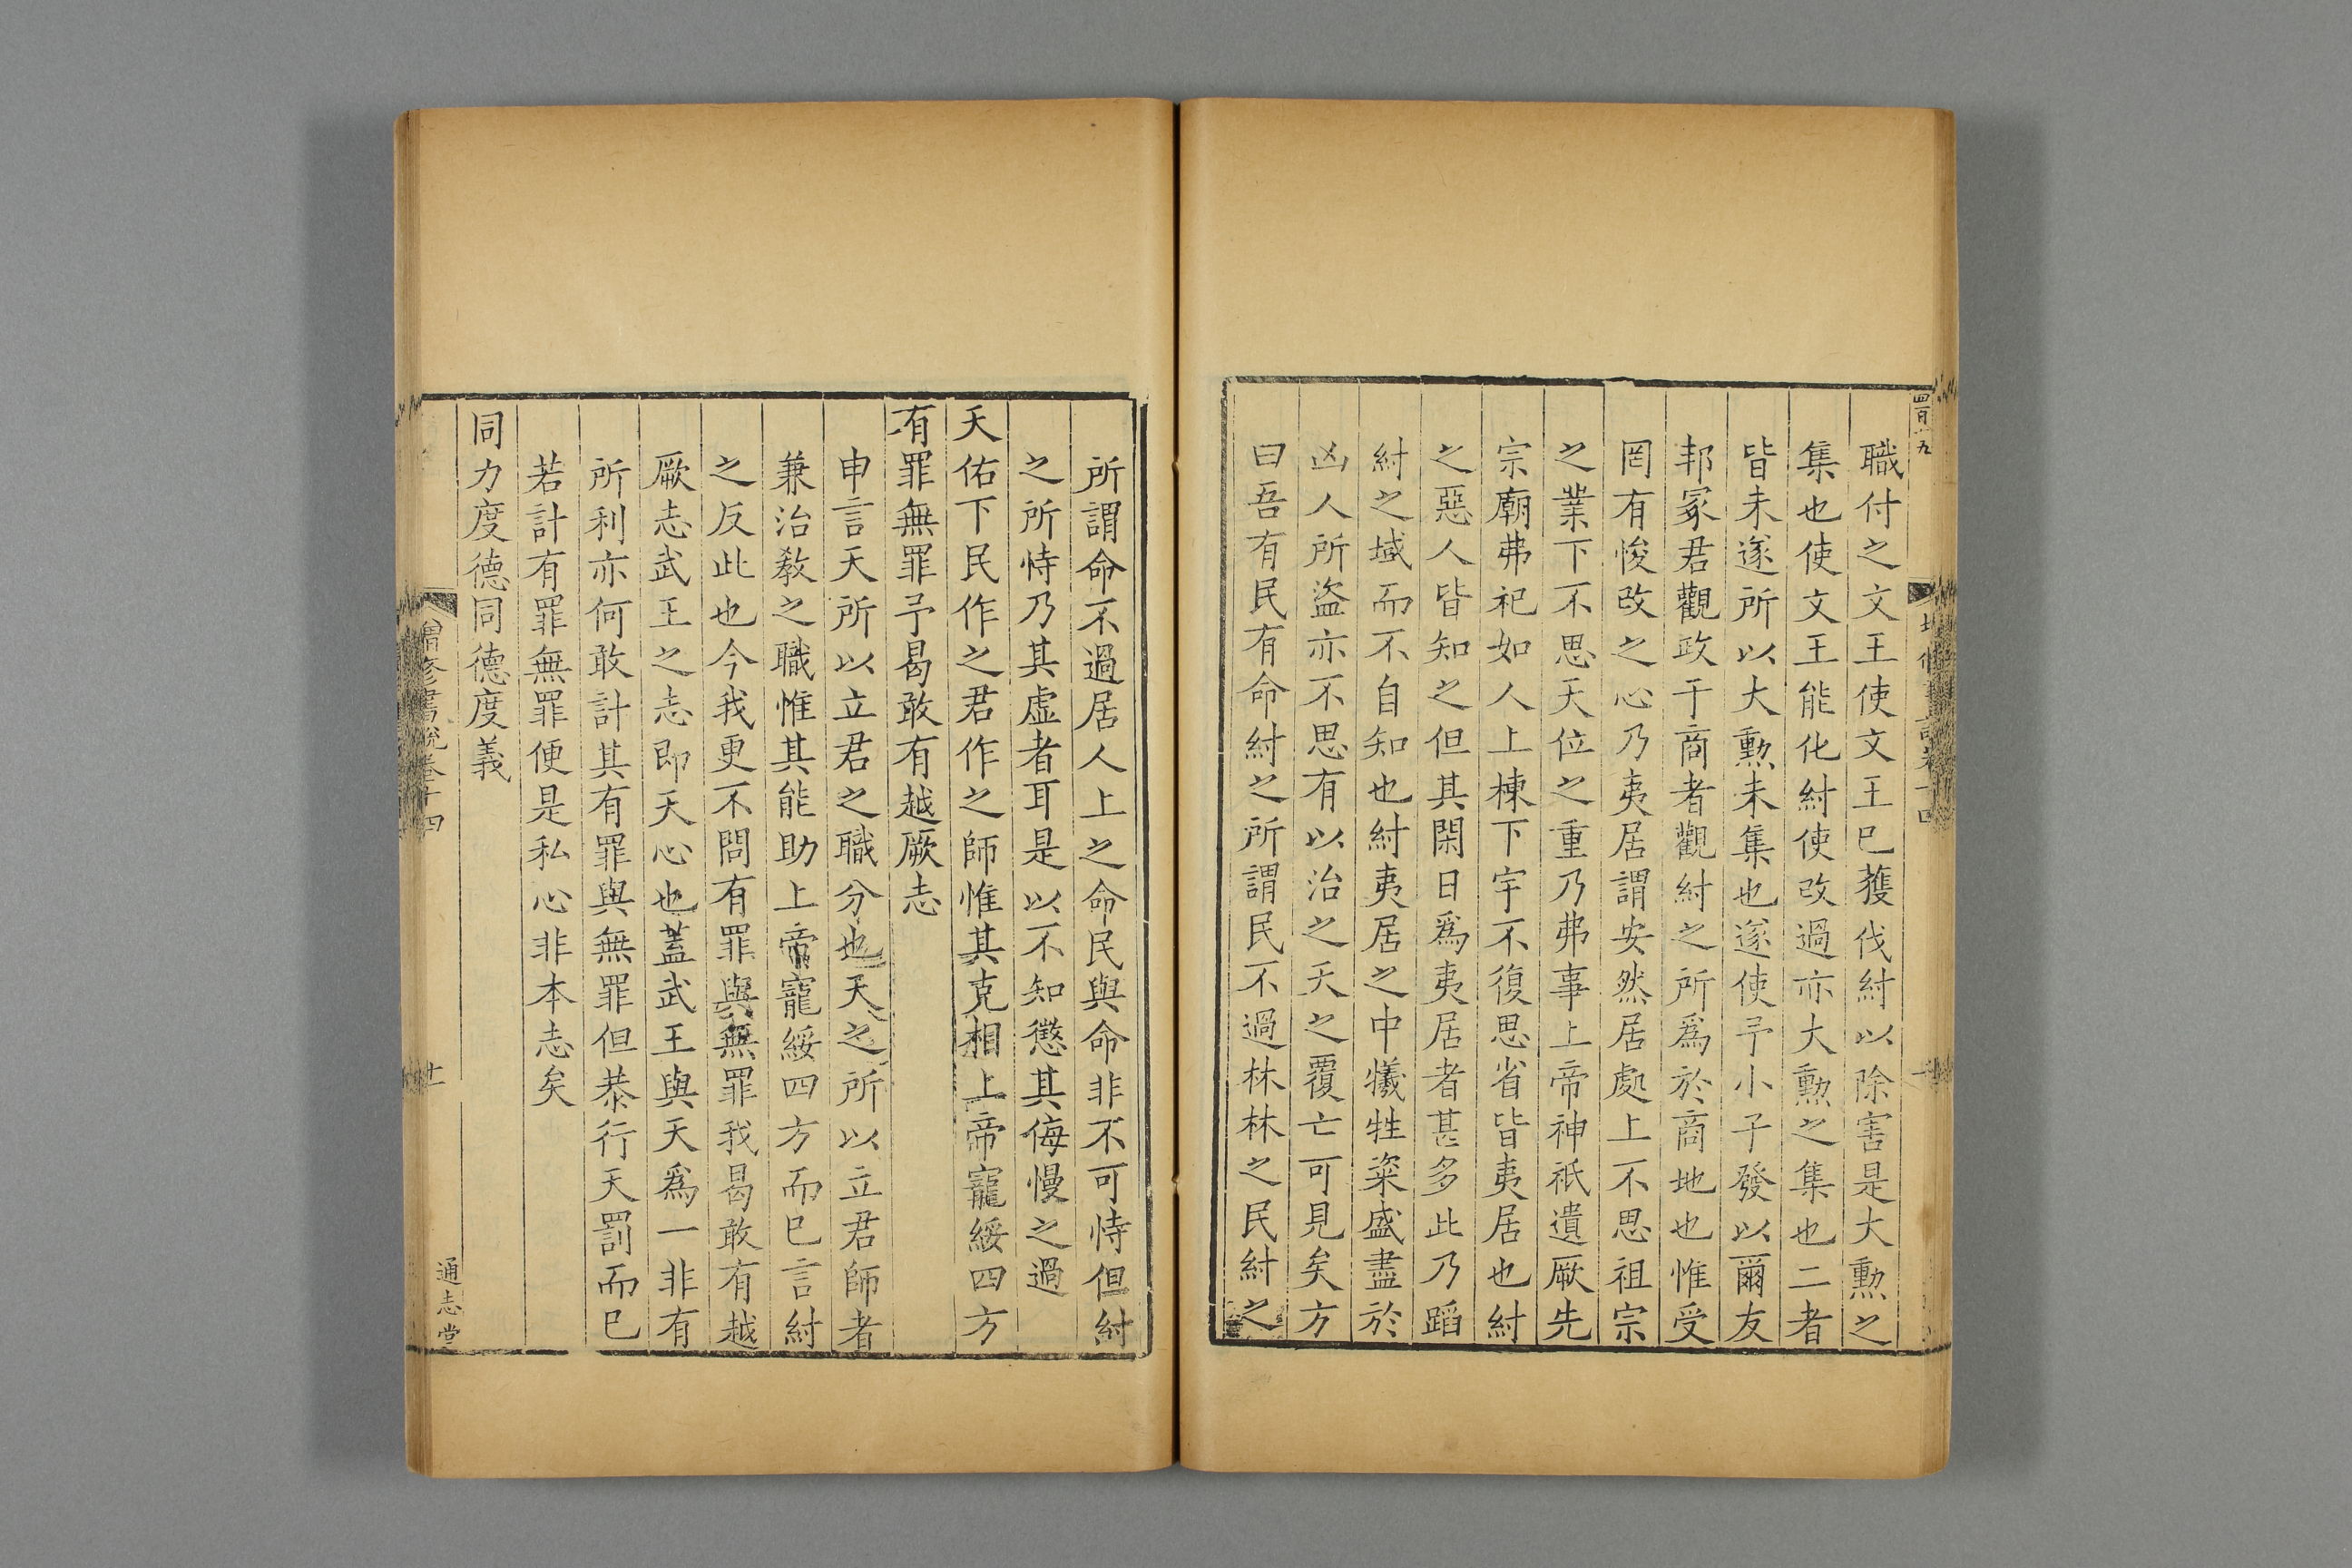 職付之文王使文王已獲伐紂以除害是大勲之
集也使文王能化紂使改過亦大勲之集也二者
皆未遂所以大勲未集也遂使予小子發以爾友
邦冢君觀政于商者觀紂之所爲於商地也惟受
罔有悛改之心乃夷居謂安然居處上不思祖宗
之業下不思天位之重乃弗事上帝神祇遺厥先
宗廟弗祀如人上棟下宇不復思省皆夷居也紂
之惡人皆知之但其閑日爲夷居者甚多此乃蹈
紂之域而不自知也紂夷居之中犧牲粢盛盡於
凶人所盜亦不思有以治之天之覆亡可見矣方
曰吾有民有命紂之所謂民不過林林之民紂之
所謂命不過居人上之命民與命非不可恃但紂
之所恃乃其虛者耳是以不知懲其侮慢之過
天佑下民作之君作之師惟其克相上帝寵綏四方
有罪無罪予曷敢有越厥志
申言天所以立君之職分也天之所以立君師者
兼治敎之職惟其能助上帝寵綏四方而已言紂
之反此也今我更不問有罪與無罪我曷敢有越
厥志武王之志即天心也蓋武王與天爲一非有
所利亦何敢計其有罪與無罪但恭行天罰而已
若計有罪無罪便是私心非本志矣
同力度德同德度義
增修書說卷十四
十一
通志堂